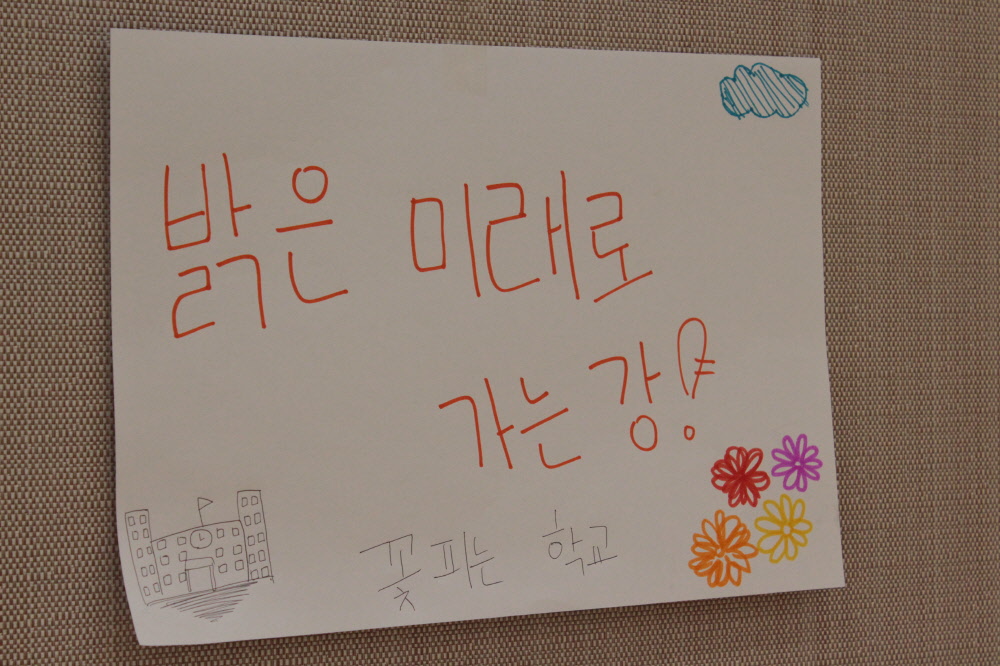 밝은 미래로
가는 강!
꽃피는 학교